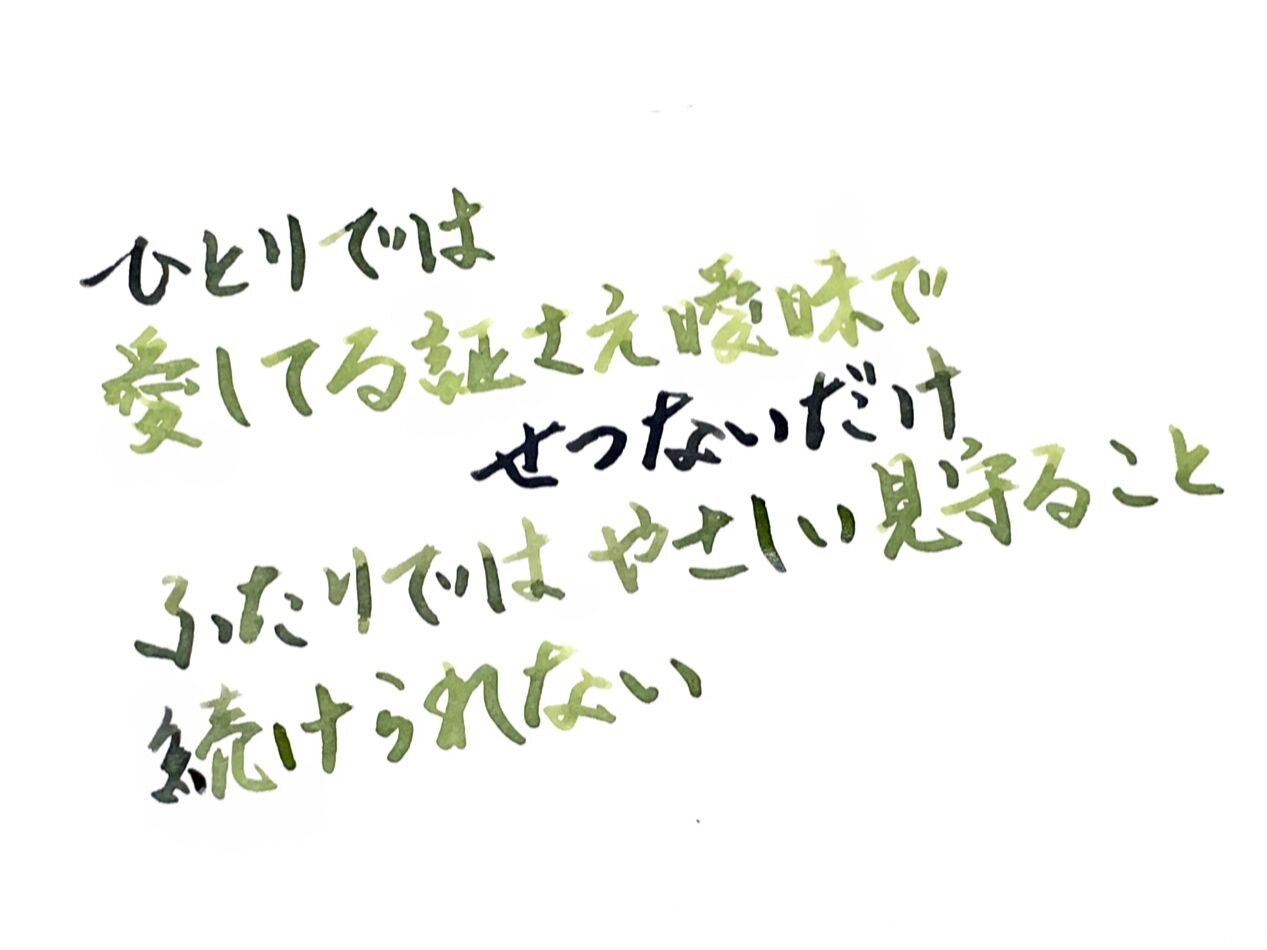 ひとりでは
愛してる証さえ曖昧で
せつないだけ
ふたりでは やさしい見守ること
続けられない